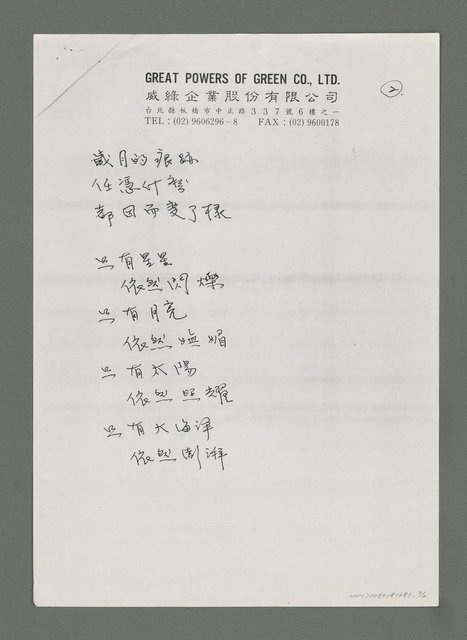 GREAT POWERS OF GREEN CO., LTD.
②
威綠企業股份有限公司
台北縣板橋市中正路337號6樓之一
TEL：(02) 9606296－8 FAX：(02) 9600178
歲月的痕跡
任憑什麼
都因而變了樣
只有星星
依然閃爍
只有月亮
依然嫵媚
只有太陽
依然照耀
只有大海洋
依然澎湃